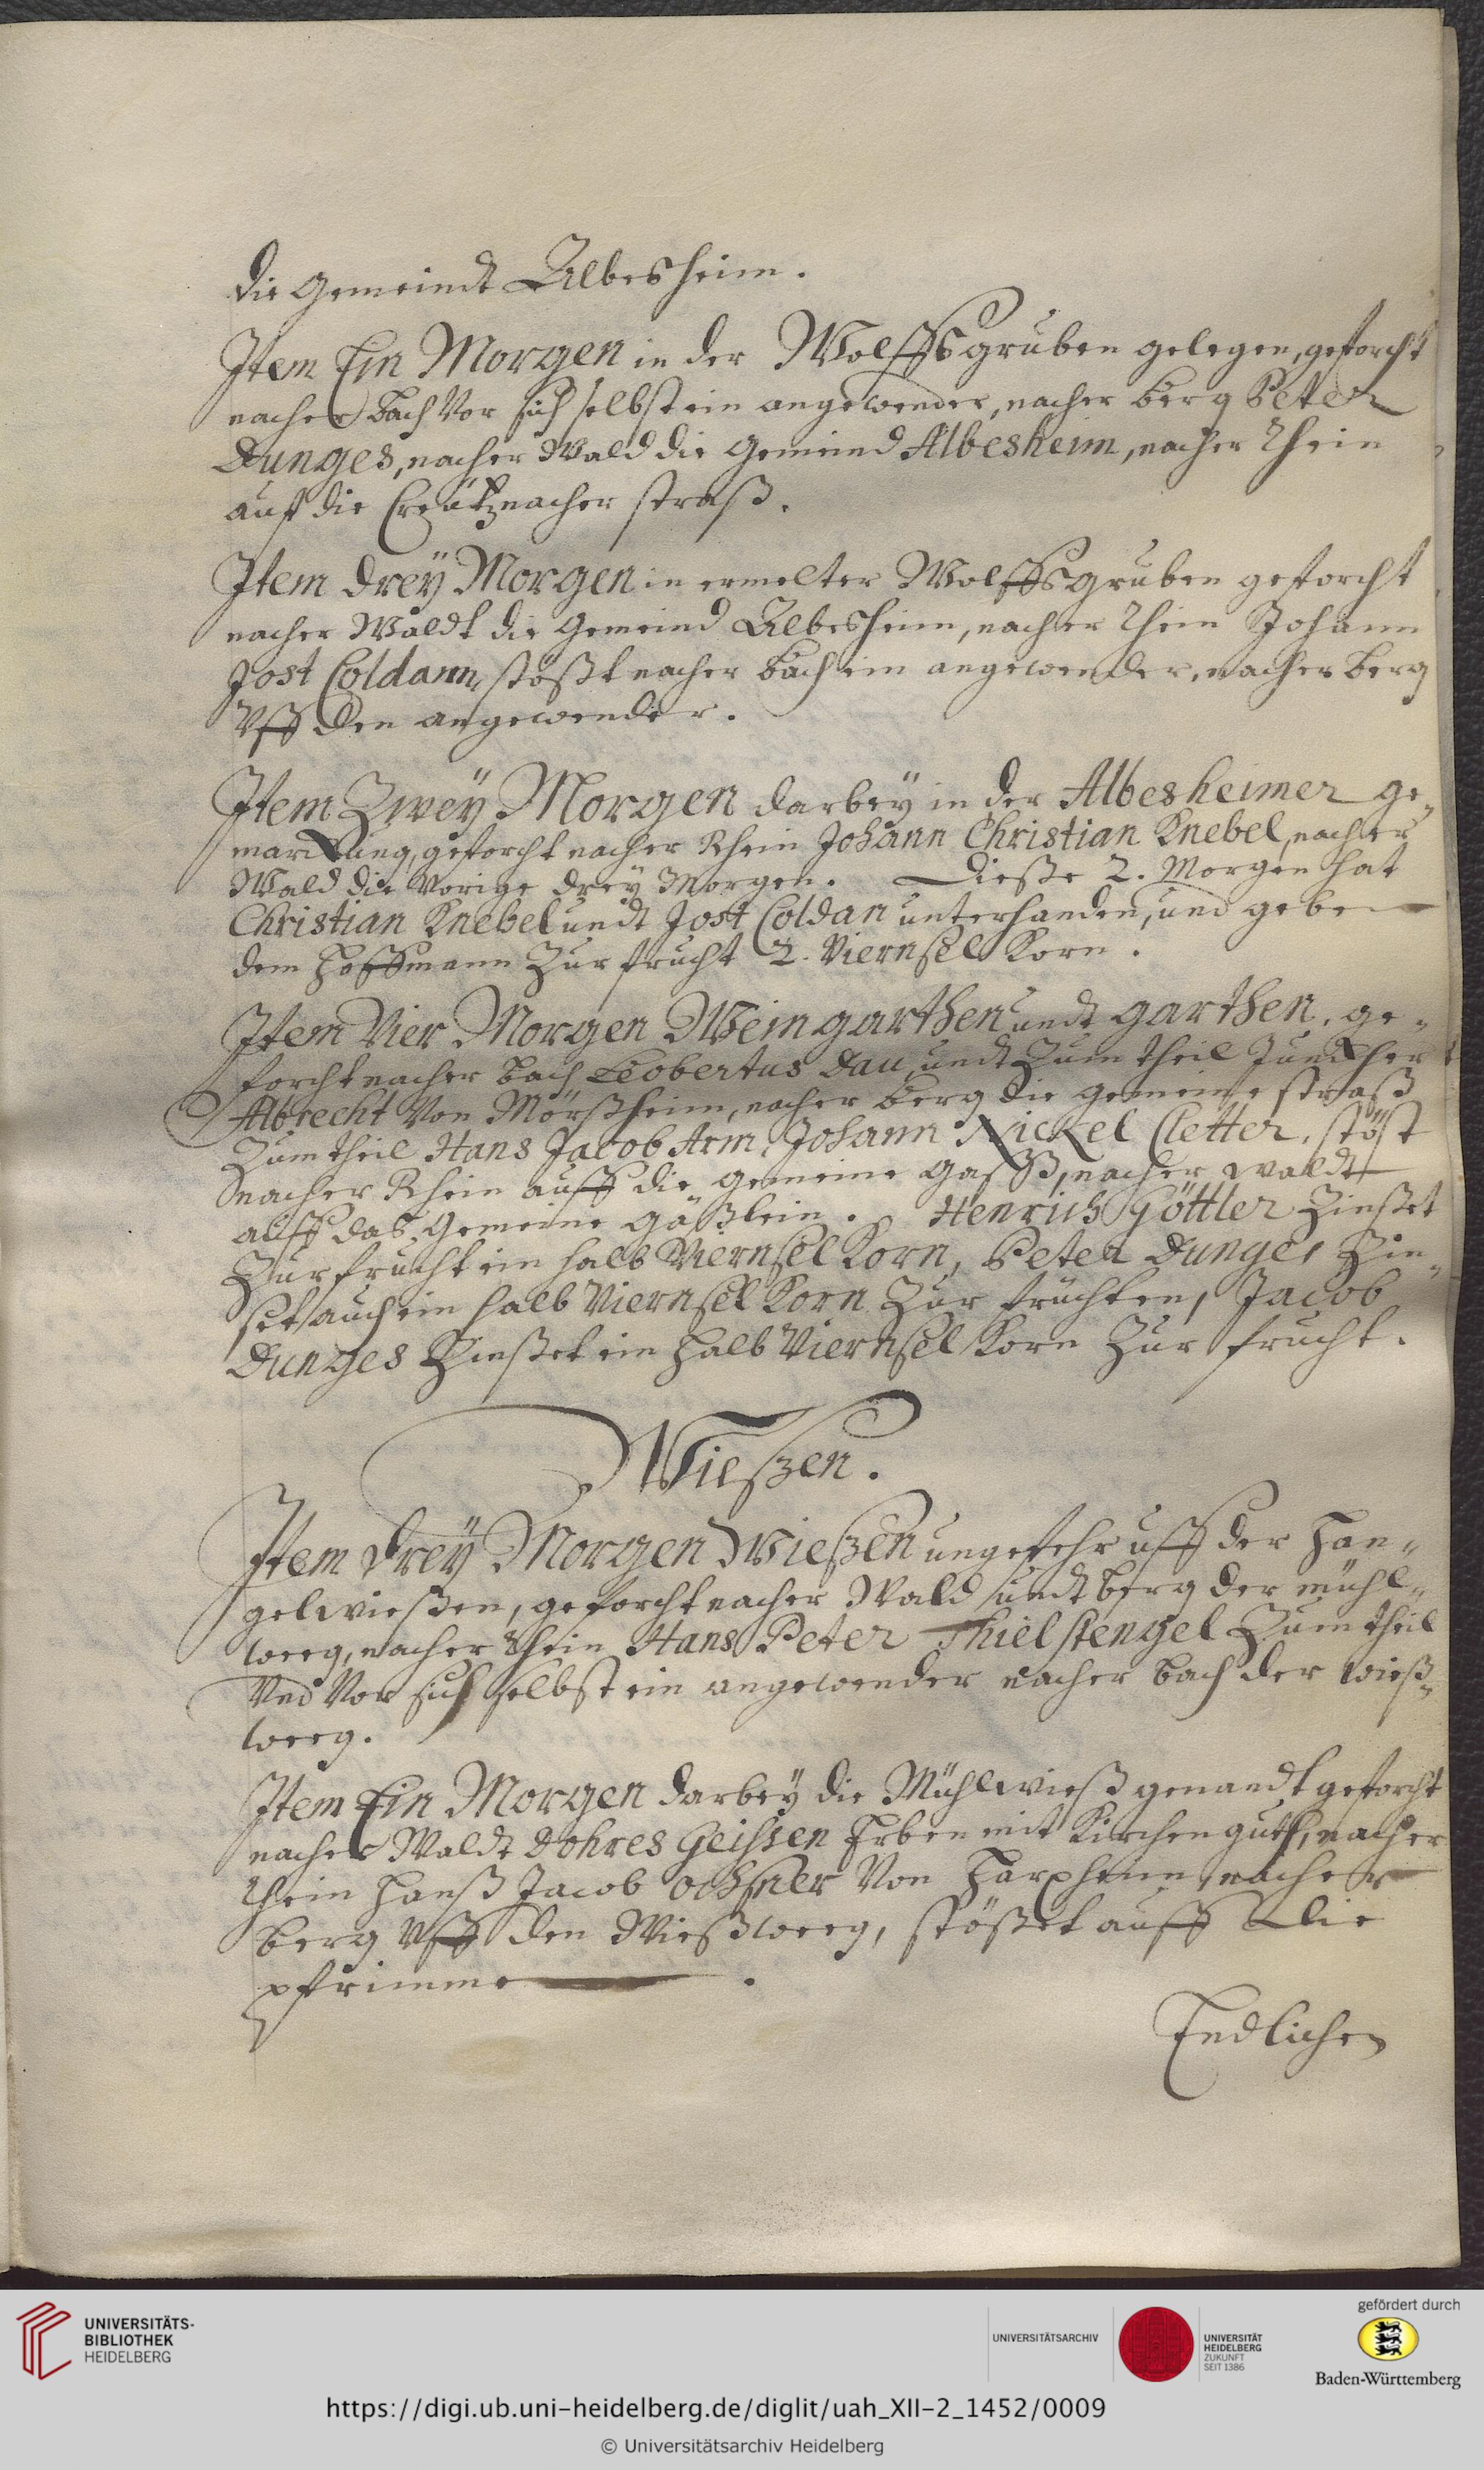 die Gemeindt Albesheim.
Item Ein Morgen in der Wolffsgruben gelegen, geforcht
nacher Bach Vor sich selbst ein angewender, nacher berg Peter
Dunges, nacher Wald die Gemeind Albesheim, nacher Rhein
auf die Creütznacher straß.
Item drey Morgen in ermelter Wolffsgruben geforcht
nacher Waldt die Gemeind Albesheim, nacher Rhein Johann
Jost Coldann, stößt nacher bach ein angewender, nacher berg
Vff den angewender.
Item Zwey Morgen darbey in der Albesheimer ge-
marckung, geforcht nacher Rhein Johann Christian Knebel, nacher
Wald die Vorige drey Morgen. Dieße 2. Morgen hat
Christian Knebel undt Jost Coldan unterhanden, und geben
dem Hoffmann Zur frucht 2. Viernsel Korn.
Item Vier Morgen Weingarthen undt garthen, ge-
forcht nacher bach Leobertus Dau, undt Zum theil Junckher
Albrecht Von Mörßheim, nacher berg die gemeine straß
Zum theil Hans Jacob Arm, Johann Nickel Cletter, stöst
nacher Rhein auff die gemeine gaß, nacher waldt
auff das Gemeine gäßlein. Henrich Göttler Zinßet
Zur frucht ein halb Viernsel Korn, Peter Dunges Zin-
set auch ein halb Viernsel Korn Zur früchten, Jacob
Dunges Zinßet ein halb Viernsel Korn Zur frucht.
Wießen.
Item drey Morgen Wießen ungefehr uff der Han-
gelwießen, geforcht nacher Wald undt berg der mühl-
weeg, nacher Rhein Hans Peter Thielstengel Zum theil
Und Vor sich selbst ein angewender nacher bach der wieß-
weeg.
Item Ein Morgen darbey die Mühlwieß genandt geforcht
nacher Waldt Dohres Geissen Erben mit Kirchen guth, nacher
Rhein Hanß Jacob Ochsner Von Harxheim nacher
berg Vff den Wießweeg, stößet auff die
pfrimme.
Endlichen
UNIVERSITÄTS-
BIBLIOTHEK
HEIDELBERG
UNIVERSITÄTSARCHIV
UNIVERSITÄT
HEIDELBERG
ZUKUNFT
SEIT 1386
gefördert durch
Baden-Württemberg
https://digi.ub.uni-heidelberg.de/diglit/uah_XII-2_1452/0009
© Universitätsarchiv Heidelberg